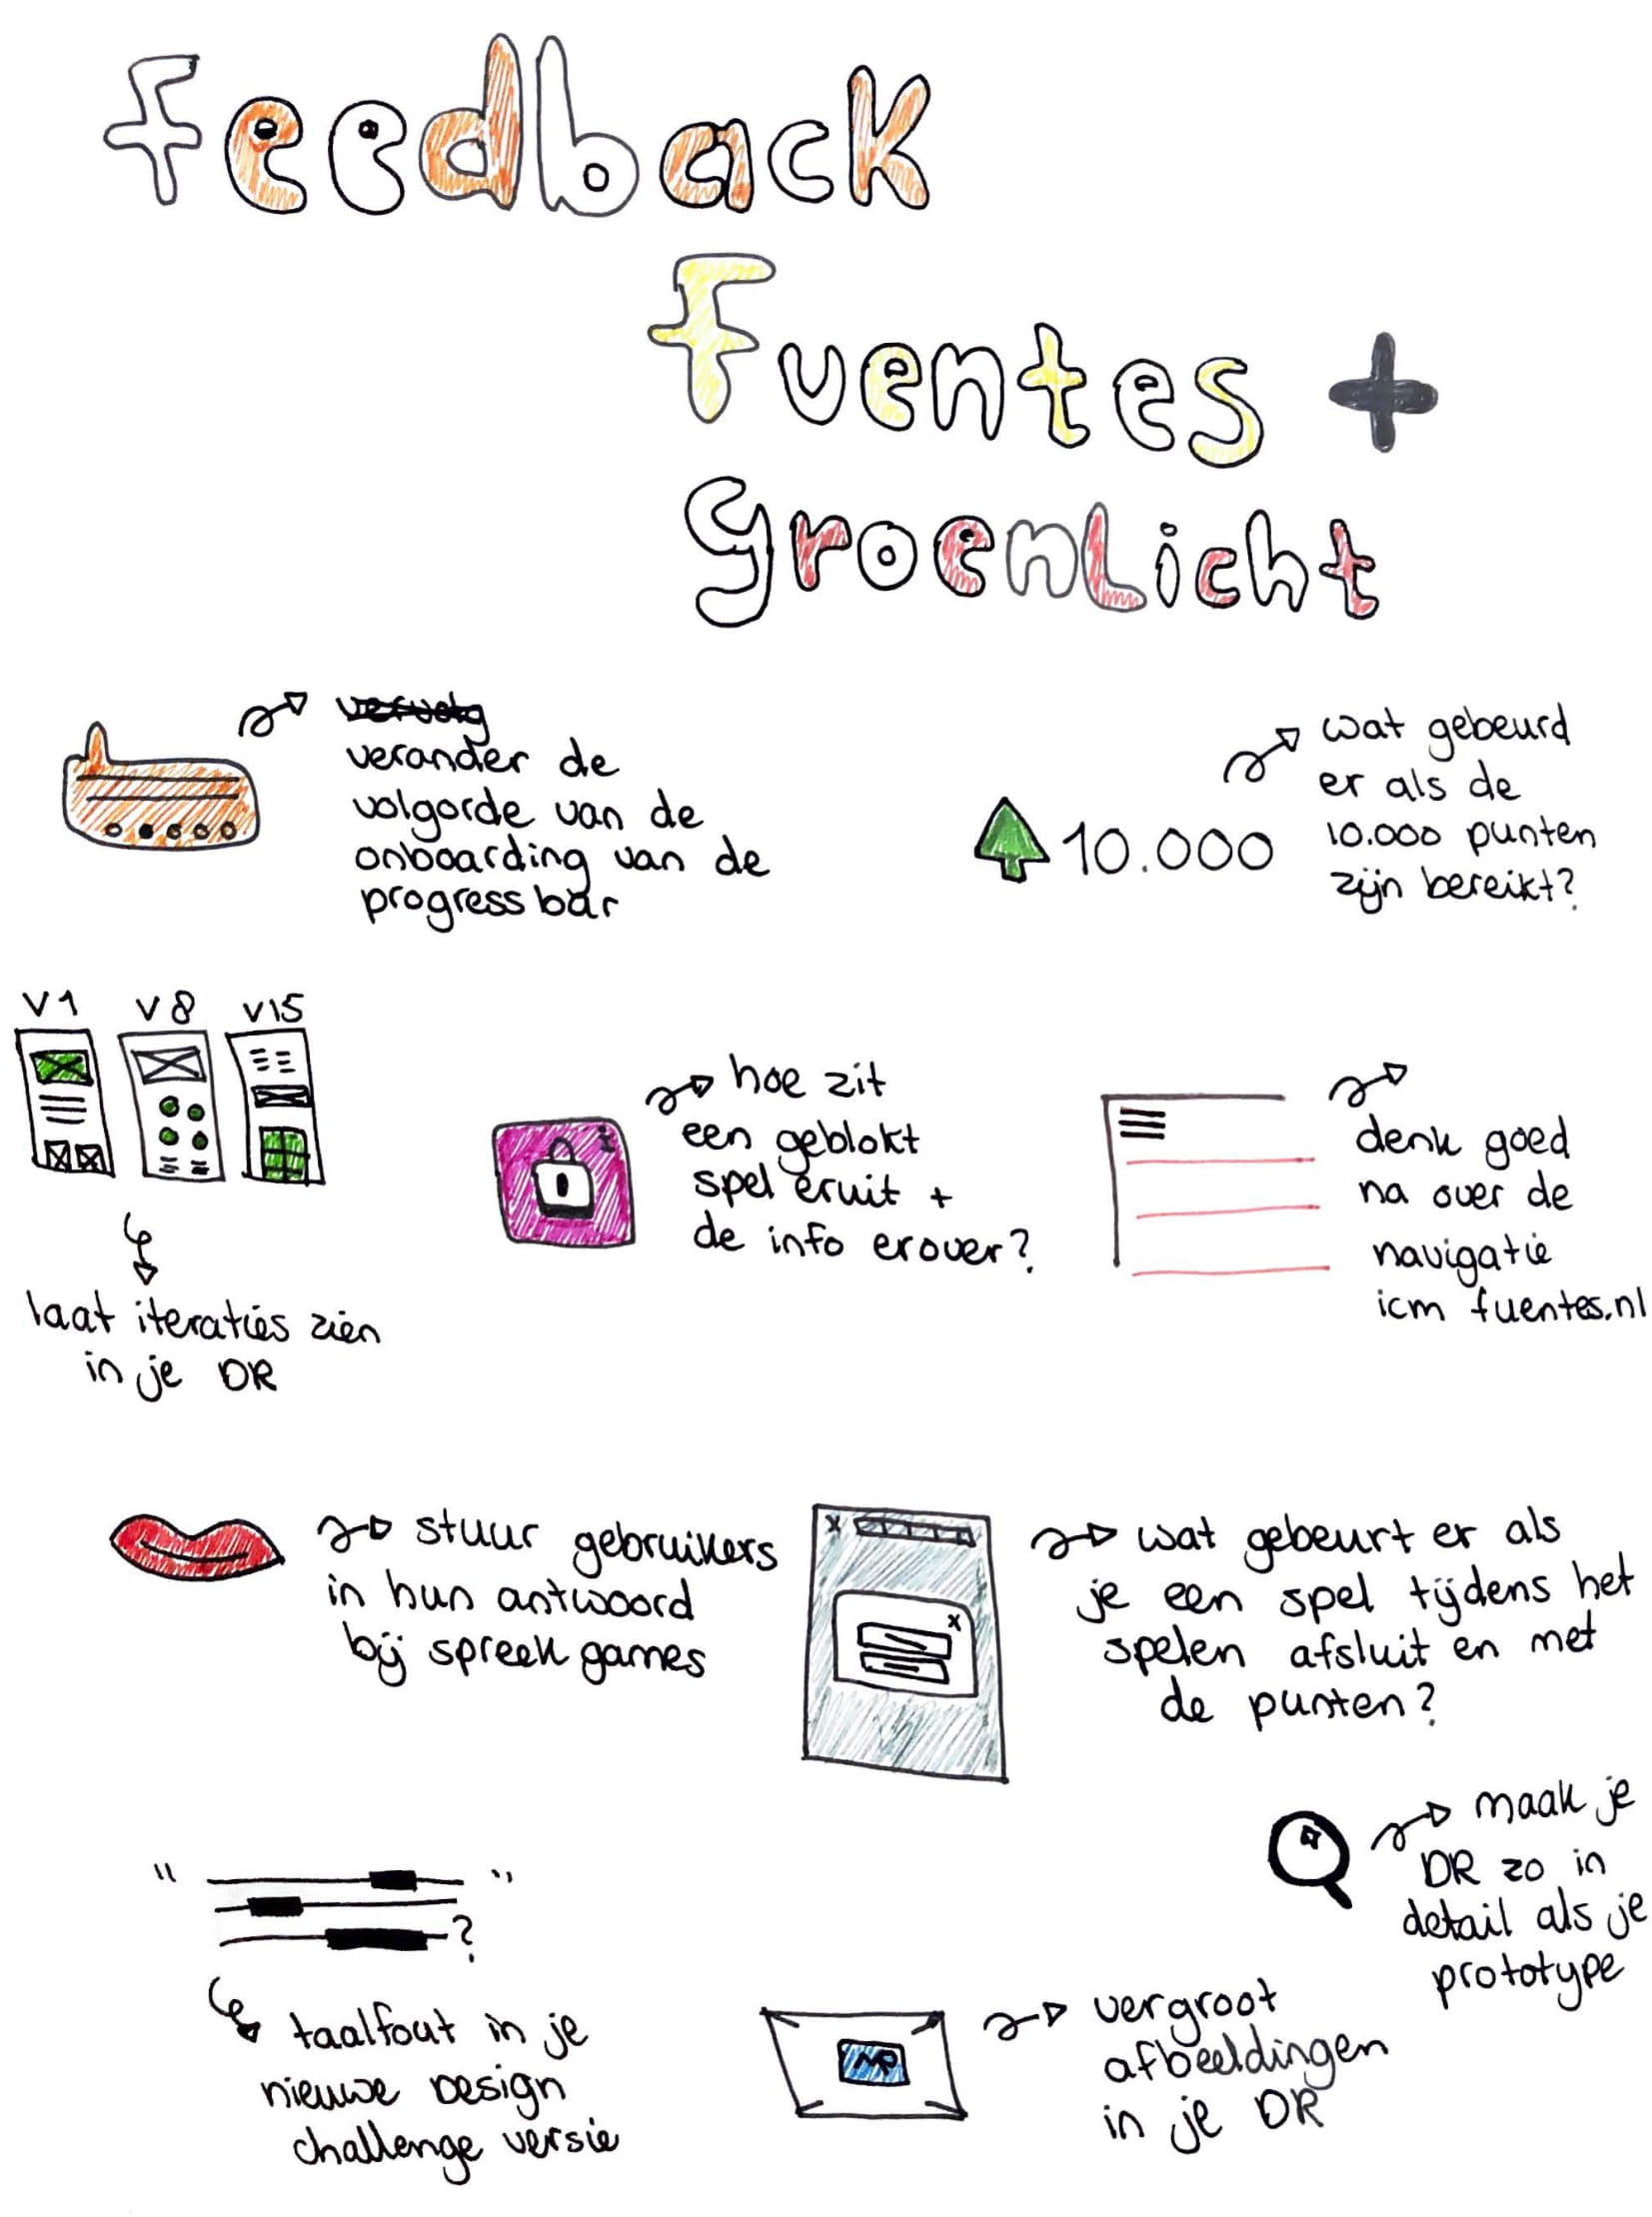 Feedback
Fuentes +
Groenlicht
vervolg
verander de
volgorde van de
onboarding van de
progress bar
wat gebeurd
er als de
10.000 punten
zijn bereikt?
10.000
V1 V8 V15
laat iteraties zien
in je DR
hoe zit
een geblokt
spel eruit +
de info erover?
i
denk goed
na over de
navigatie
icm fuentes.nl
stuur gebruikers
in hun antwoord
bij spreek games
x
x
wat gebeurt er als
je een spel tijdens het
spelen afsluit en met
de punten?
maak je
DR zo in
detail als je
prototype
" "
?
taalfout in je
nieuwe Design
challenge versie
vergroot
afbeeldingen
in je DR